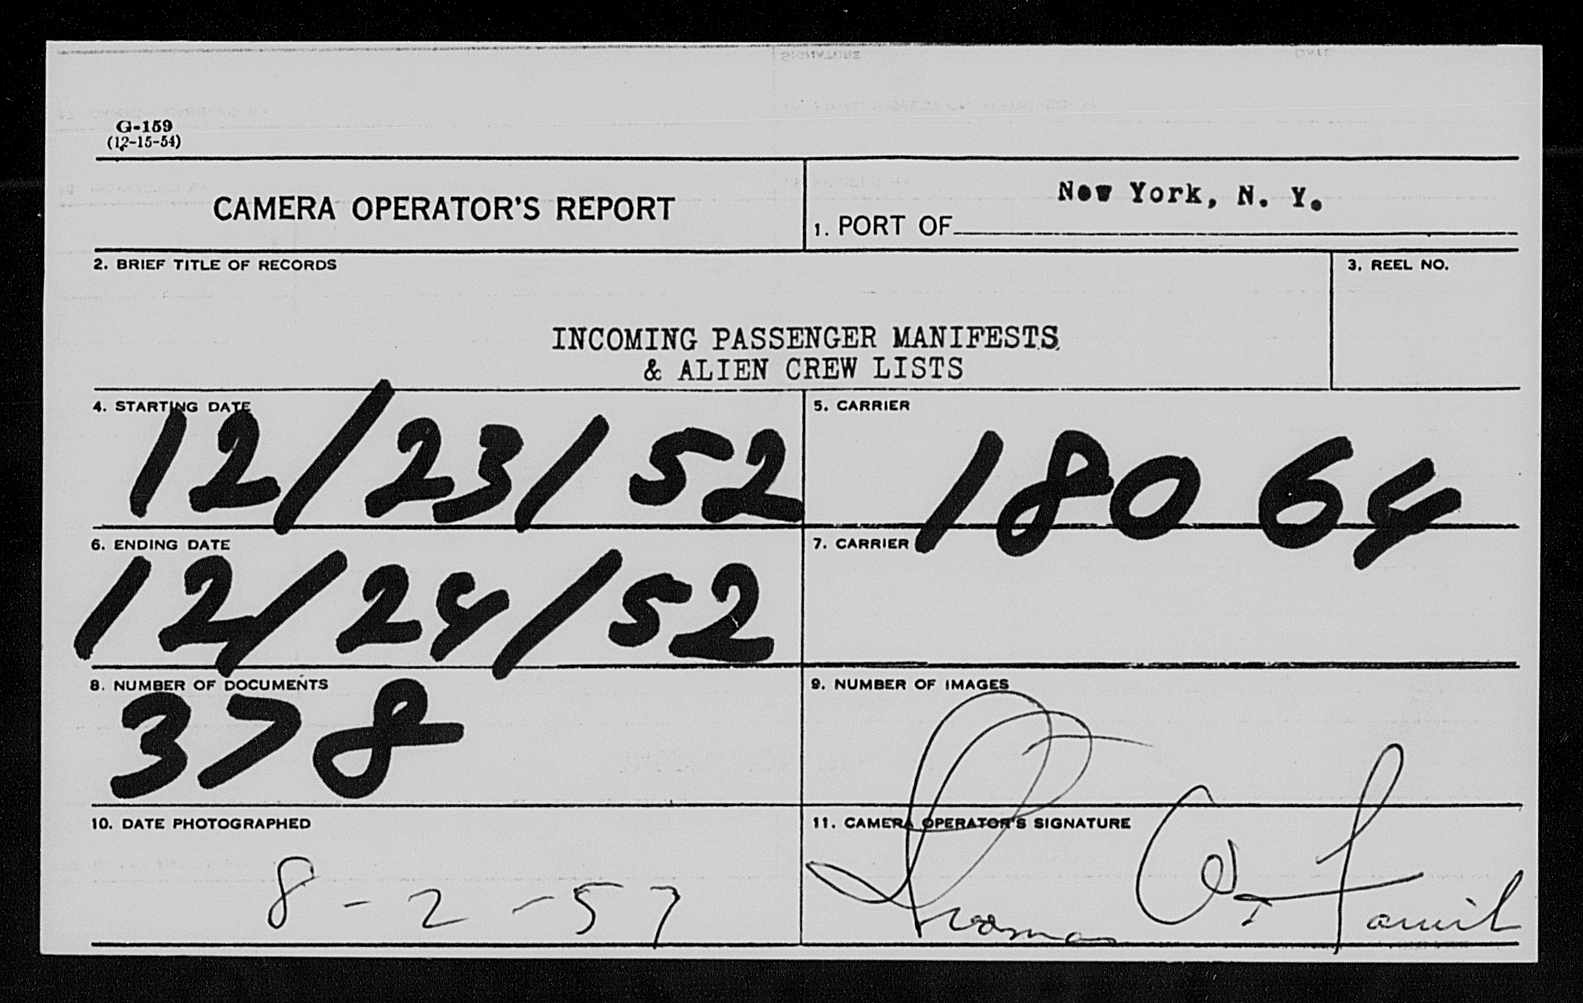 G-159
(12-15-54)
CAMERA OPERATOR'S REPORT
1. PORT OF New York, N. Y.
2. BRIEF TITLE OF RECORDS
INCOMING PASSENGER MANIFESTS
& ALIEN CREW LISTS
3. REEL NO.
4. STARTING DATE
12/23/52
5. CARRIER
18064
6. ENDING DATE
12/24/52
7. CARRIER
8. NUMBER OF DOCUMENTS
378
9. NUMBER OF IMAGES
10. DATE PHOTOGRAPHED
8-2-57
11. CAMERA OPERATOR'S SIGNATURE
Thomas